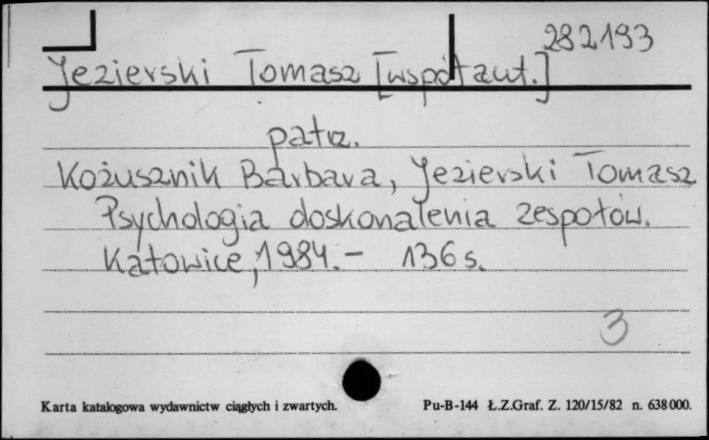 282193
Jezierski Tomasz [współaut.]
patrz.
Kożusznik Barbara, Jezierski Tomasz
Psychologia doskonalenia zespołów.
Katowice, 1984.- 136 s.
3
Karta katalogowa wydawnictw ciągłych i zwartych. Pu-B-144 Ł.Z.Graf. Z. 120/15/82 n. 638000.